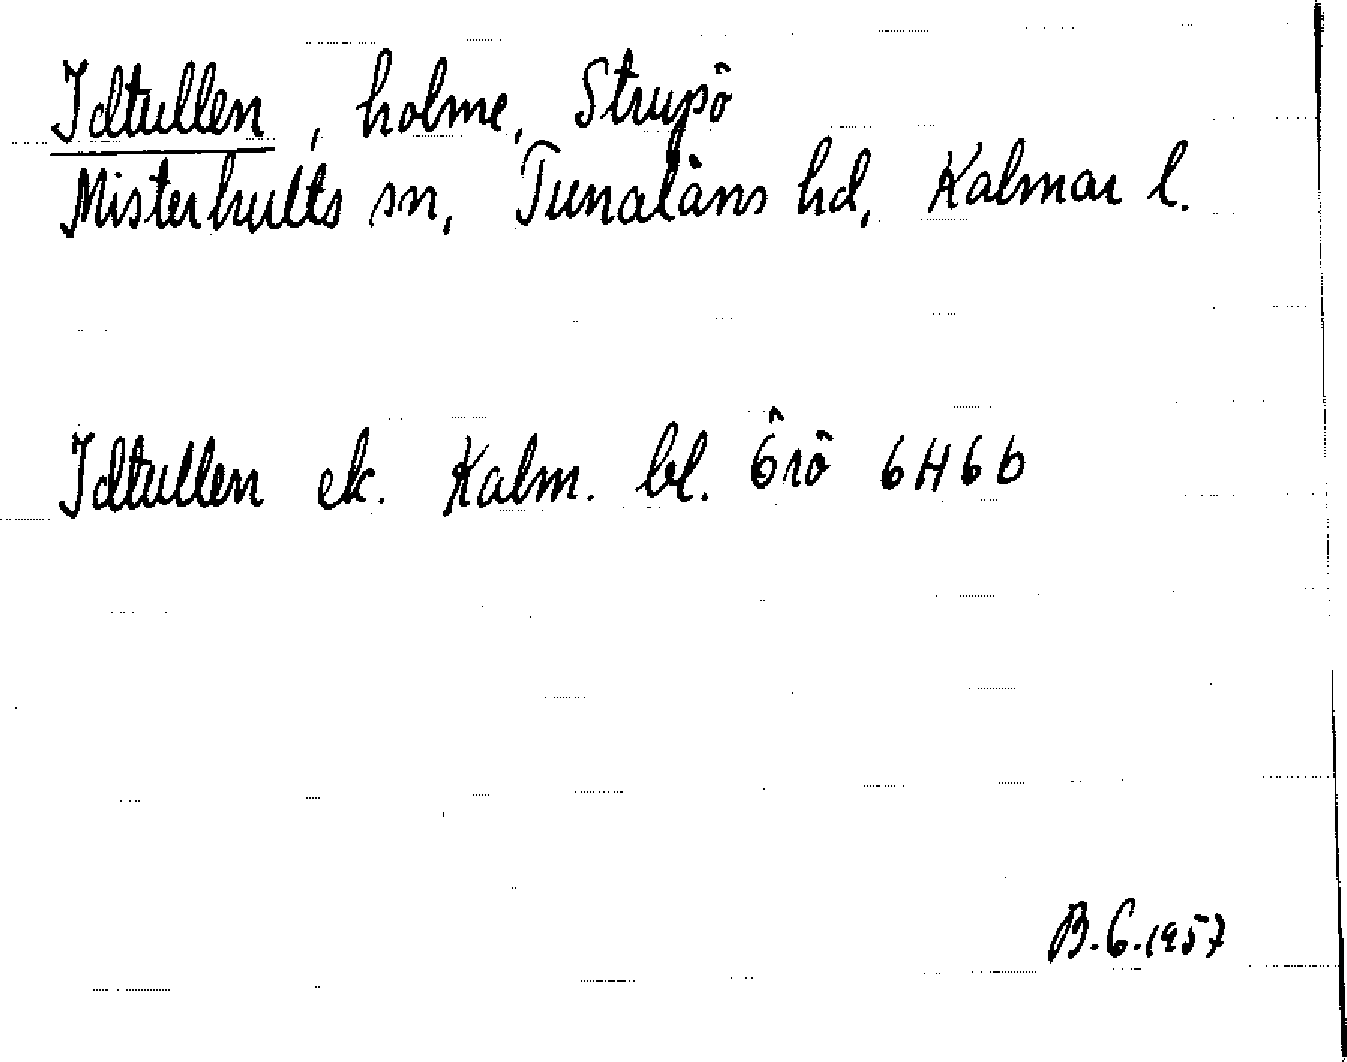 Idtullen, holme, Strupö
Misterhults sn, Tunaläns hd, Kalmar l.
Idtullen ek. Kalm. bl. Örö 6H6b
B.G.1957